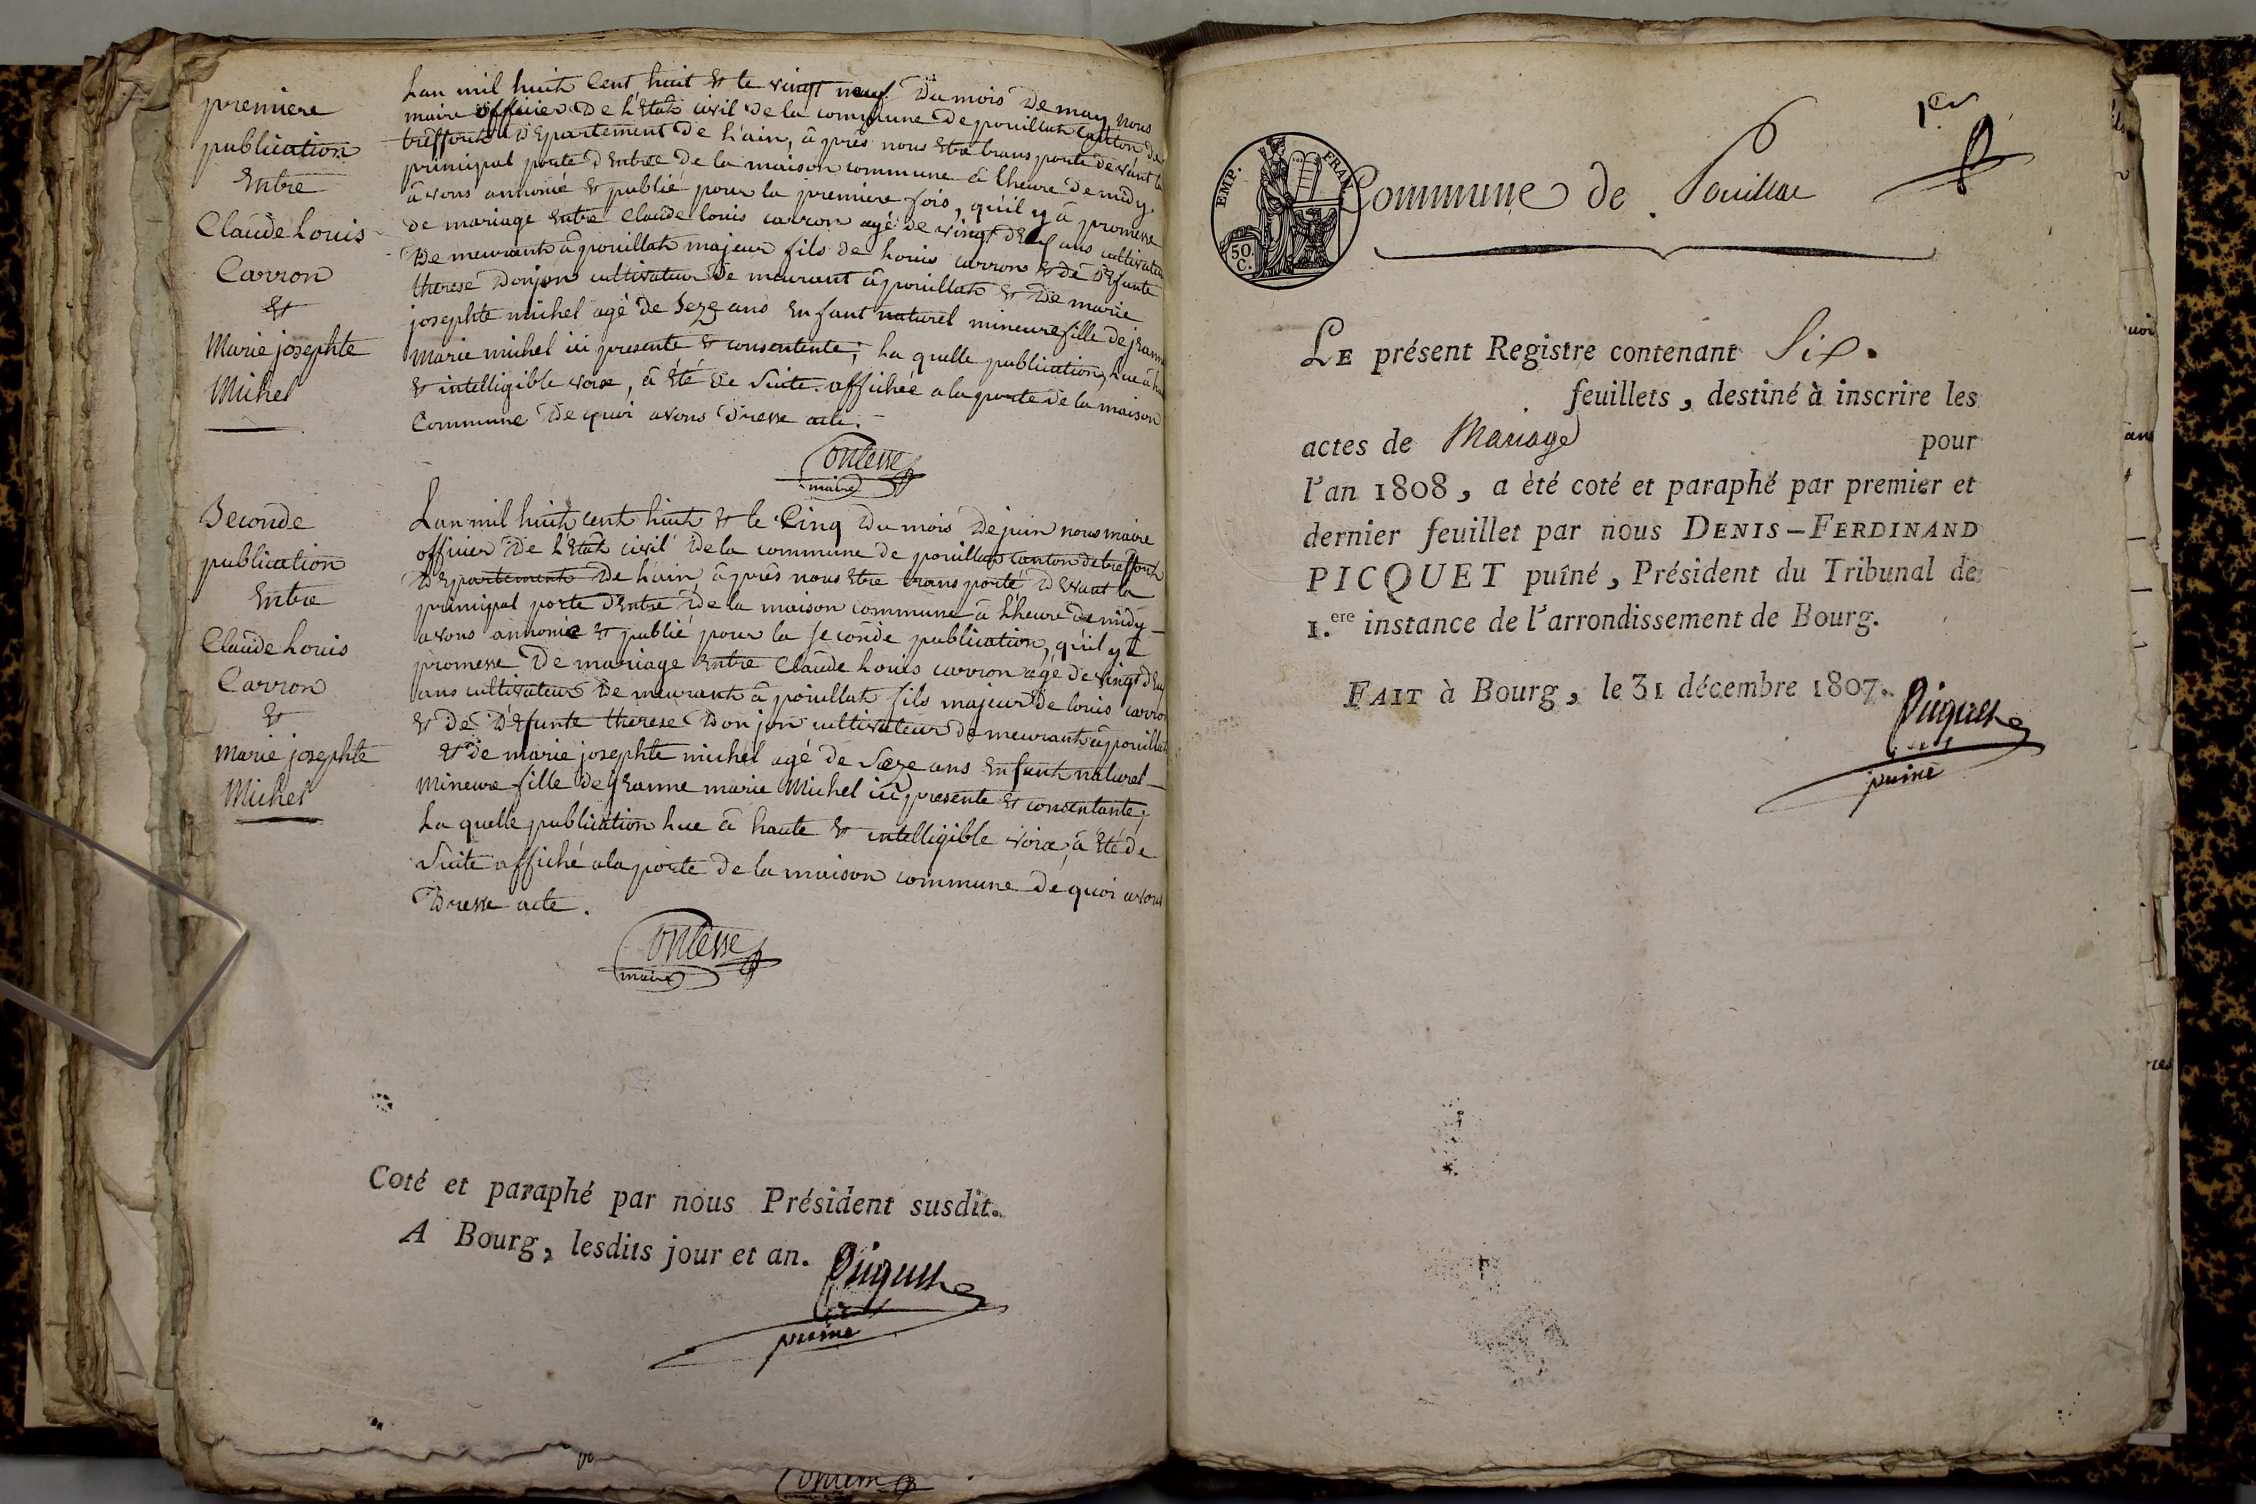 premiere
publication
Entre
Claude Louis
Carron
&
Marie josephte
Michel
Lan mil huit Cent huit & le vingt neuf Du mois De may nous
maire officier De l'Etat civil de la commune De pouillat Canton de
treffort Département De l'ain, â près nous Etre transporté devant la
principal porte d'Entrée De la maison commune â lheure De midy
âvons annoncé & publié pour la premiere fois, qu'il y â promesse
de mariage Entre Claude louis carron agé de vingt deux ans cultivateur
De meurant â pouillat majeur fils de Louis carron & de Défunte
therese Donjon cultivateur De meurant â pouillat & De marie
josephte michel agé de Seze ans Enfant naturel mineure fille de jeanne
Marie michel ici presente & consentente; La quelle publication, Lue â haute
& intelligible voix, â été De Suite affichée a la porte de la maison
Commune De quoi avons Dresse acte.
Contesse
maire
Seconde
publication
Entre
Claude Louis
Carron
&
Marie josephte
Michel
Lan mil huit cent huit & le Cinq Du mois De juin nous maire
officier De l'Etat civil De la commune de pouillat canton de treffort
Département De l'ain â près nous Etre transporté, Devant la
principal porte d'Entre De la maison commune â l'heure de midy
avons annoncé & publié pour la seconde publication, qu'il y â
promesse De mariage Entre Claude Louis carron agé de vingt deux
ans cultivateur De meurant â pouillat fils majeur De louis carron
& De Défunte therese Donjon cultivateur de meurant â pouillat
& de marie josephte michel agé de Seze ans Enfant naturel
Mineure fille De jeanne marie Michel ici presente & consentante;
La quelle publication Lue â haute & intelligible voix, â été de
Suite affiché a la porte de la maison commune De quoi avons
Dresse acte.
Contesse
maire
Coté et paraphé par nous Président susdit.
A Bourg, lesdits jour et an. Picquet
puiné
Contesse
1er
EMP. FRAN.
50.
C.
Commune de Pouillat
LE présent Registre contenant Six.
feuillets, destiné à inscrire les
actes de Mariage pour
l'an 1808, a èté coté et paraphé par premier et
dernier feuillet par nous DENIS-FERDINAND
PICQUET puîné, Président du Tribunal de
1.ere instance de l'arrondissement de Bourg.
FAIT à Bourg, le 31 décembre 1807.
Picquet
puiné